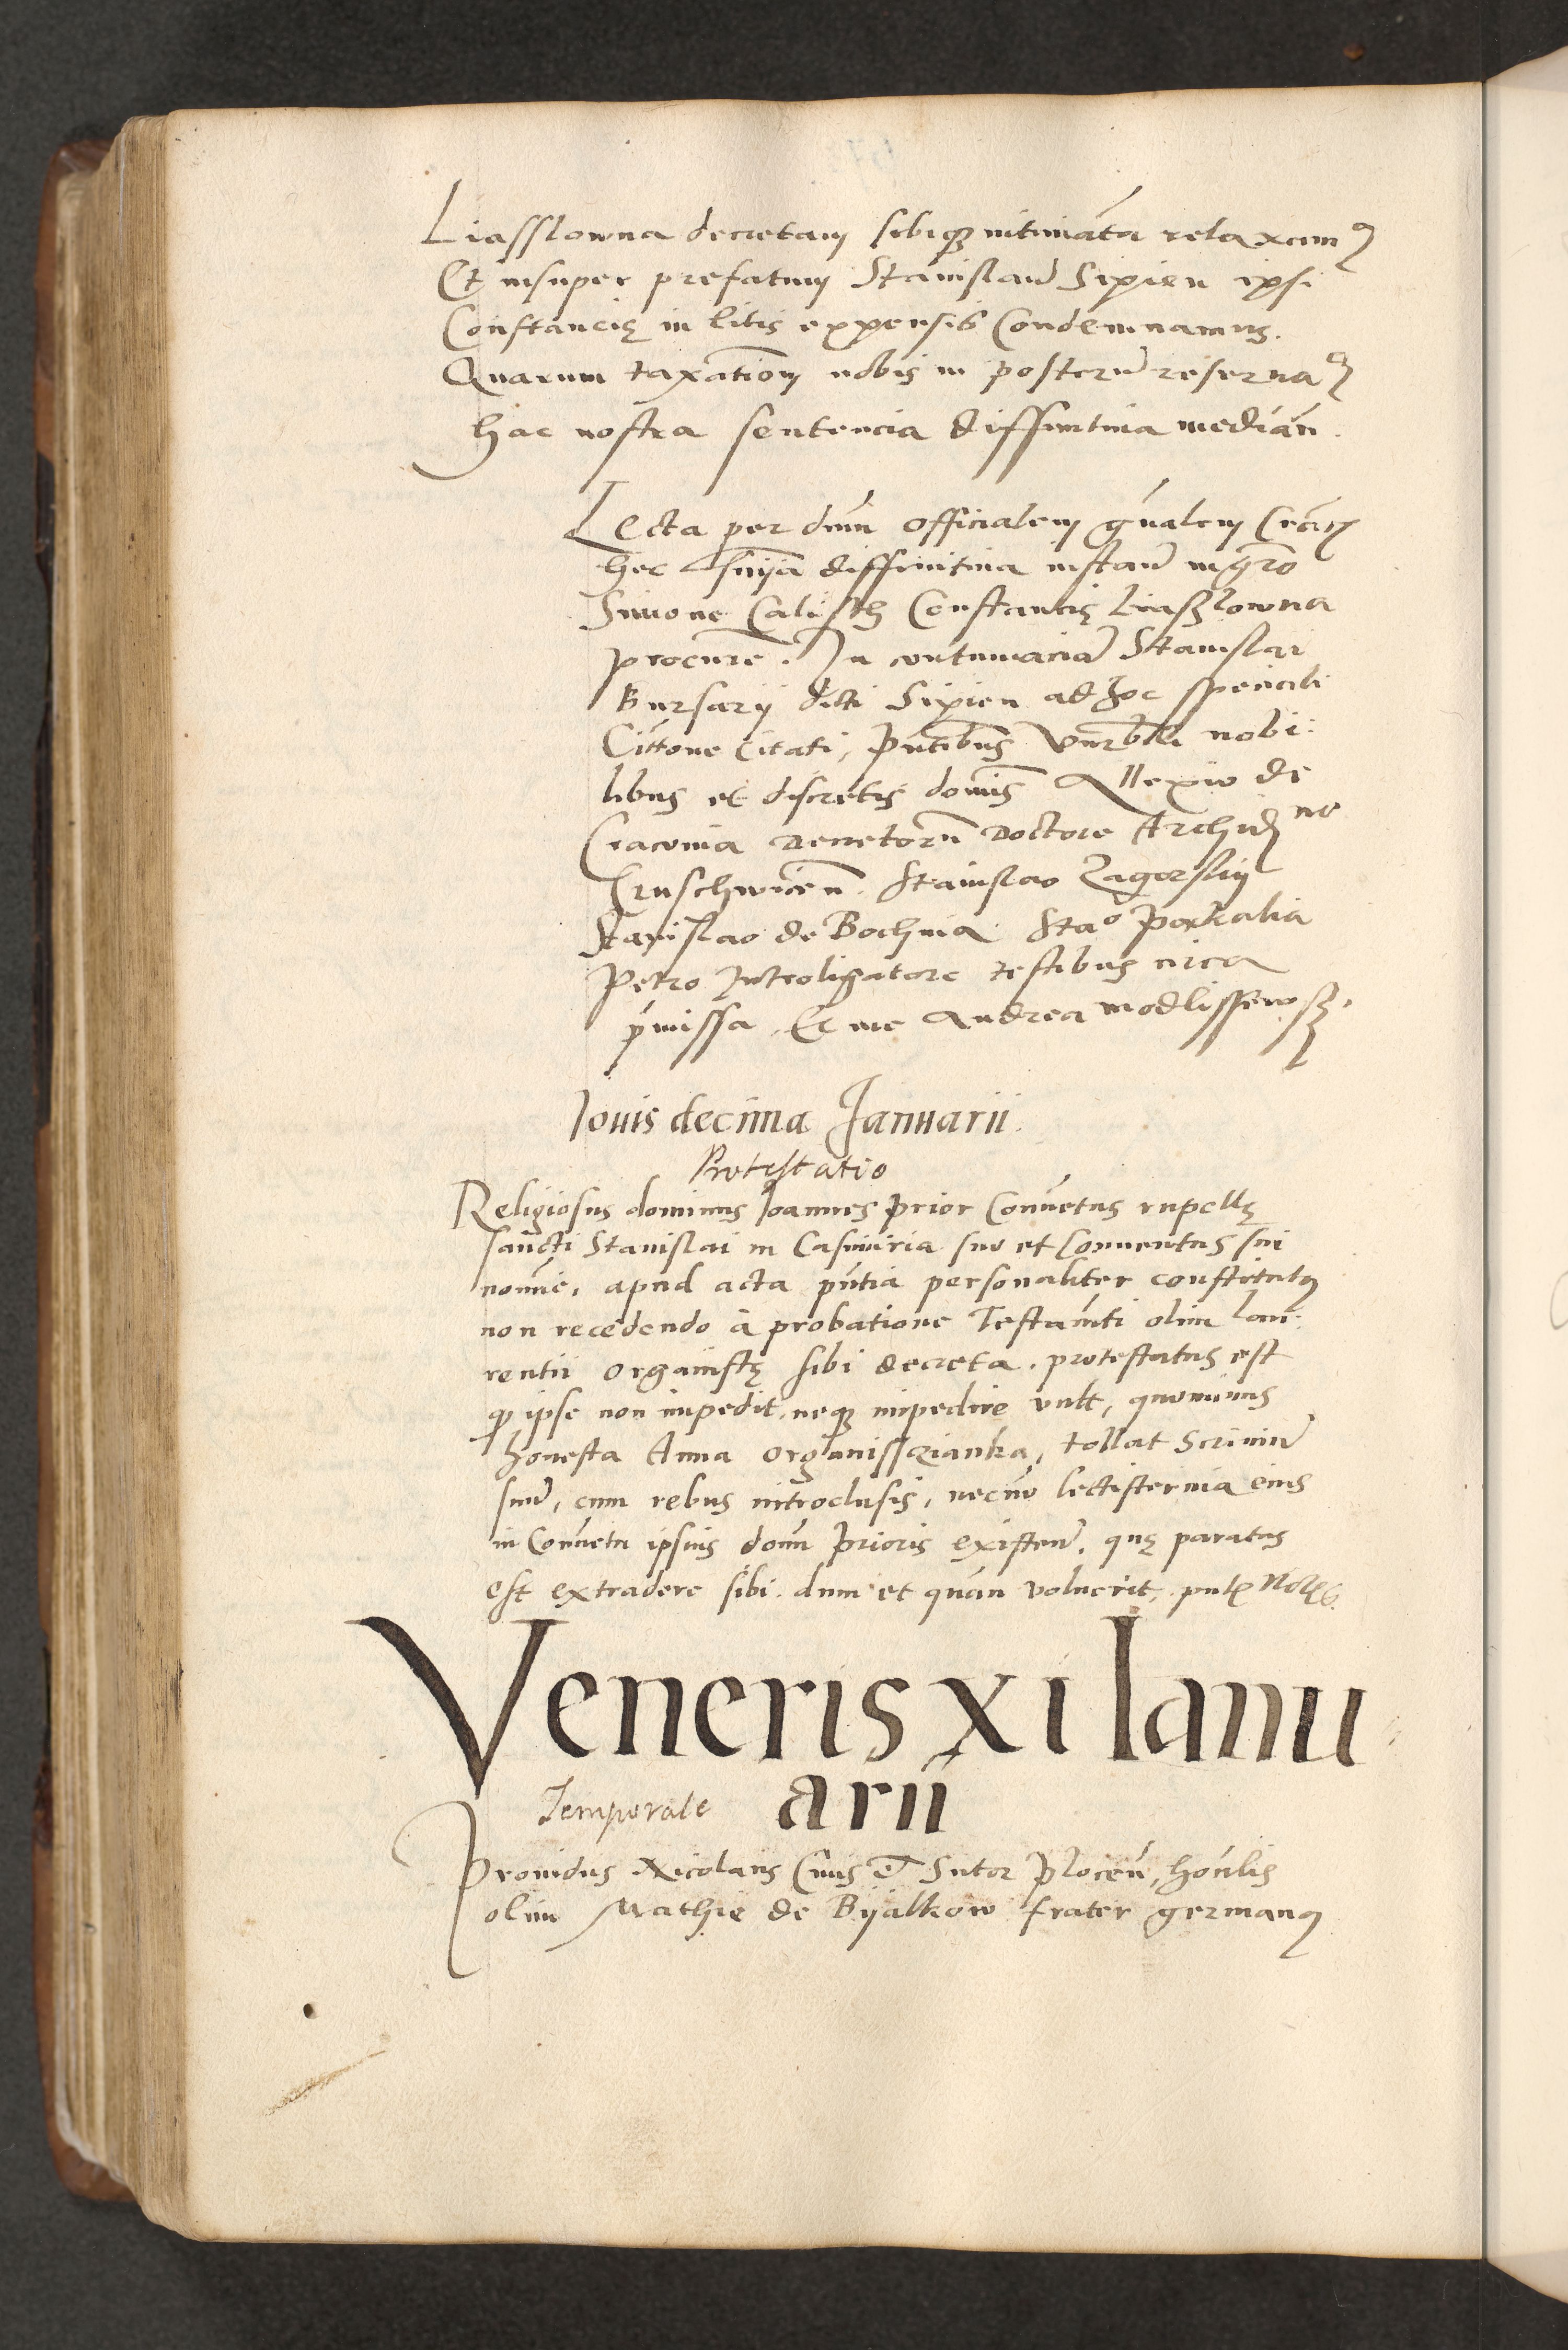 Liasslowna decretam sibiqȝ intimata relaxamꝰ
Et insuper prefatum Stanislaū Sipień ipsi
Constancię in litis expensis Condemnamus.
Quarum taxationem nobis in posterū reserva
hac nostra sentencia diffinitiva median̄.
Lecta per dnm̄ Officialem gn̄alem Crac
hec sn̄ia diffinitiva instan̄ mgro
Simone Calisch Constancię Liaszlowna
procure. In contumaciā Stanislai
Bursarij dicti Sipien ad hoc speciali
Cittone citati, pn̄tibus Vnrbli nobi:
libus et discretis dominis Allexio de
Cracovia Decretorū Doctore Archidno
Cruschvicen̄. Stanislao Zagorskij
Stanislao de Bochnia Stao Porkalia
Petro Introligatore testibus circa
p̄missa, Et me Andrea Modlissewsȝ.
Iovis decima Ianuarii.
Protestatio
Religiosus dominus Ioannes Prior Convētus rupellę
sancti Stanislai in Casimiria suo et Conventus sui
nomīe, apud acta pn̄tia personaliter constitutꝰ
non recedendo à probatione Testamn̄ti olim Lau:
rentii organistę sibi decreta. protestatus est
qƺ ipse non impedit, neqȝ impedire vult, quominus
honesta Anna organisszianka, tollat Scriniū
suū, cum rebus introclusis, necnō lectisternia eius
in Convētu ipsius domī Prioris existen̄. quę paratus
est extradere sibi. dum et quan̄ voluerit, pn̄te Note.
Veneris xi Ianu
arii
Temporale
Providus Nicolaus Civis et Sutor Plocen̄, hon̄lis
olim Mathie de Bijalkow frater germanꝰ